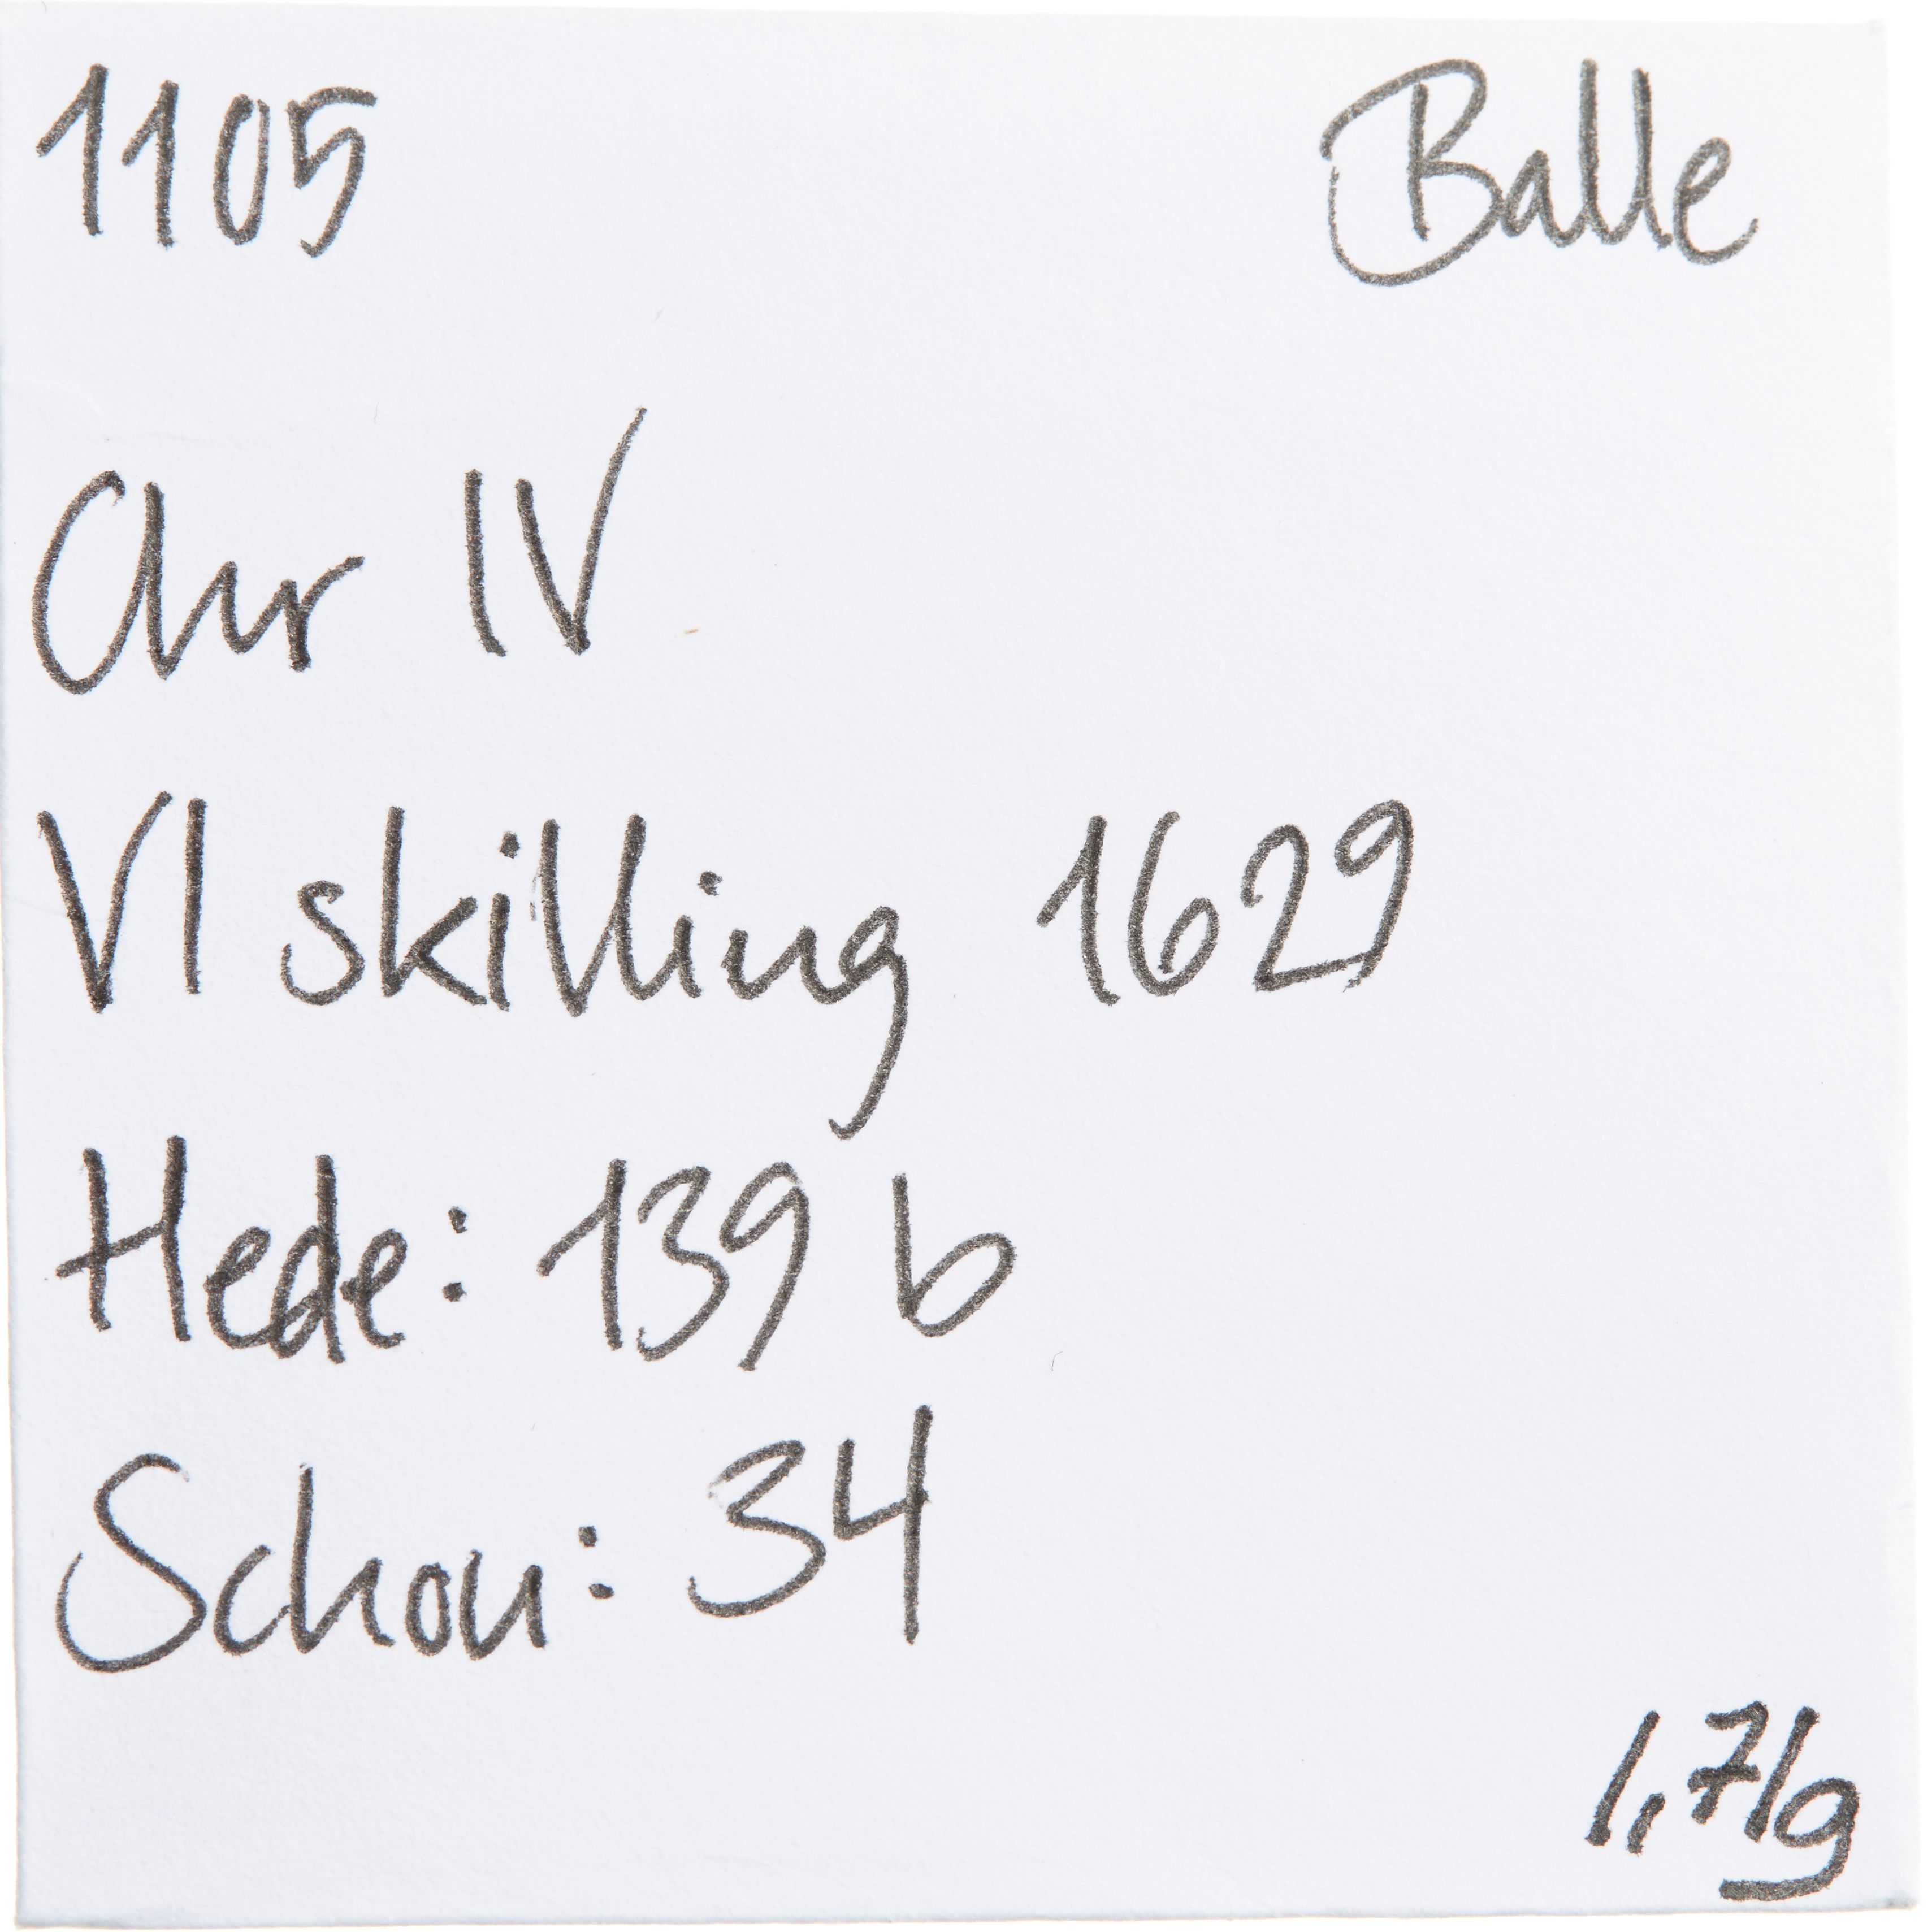 1105 Balle
Chr IV
VI skilling 1629
Hede: 139 b
Schou: 34
1,71g